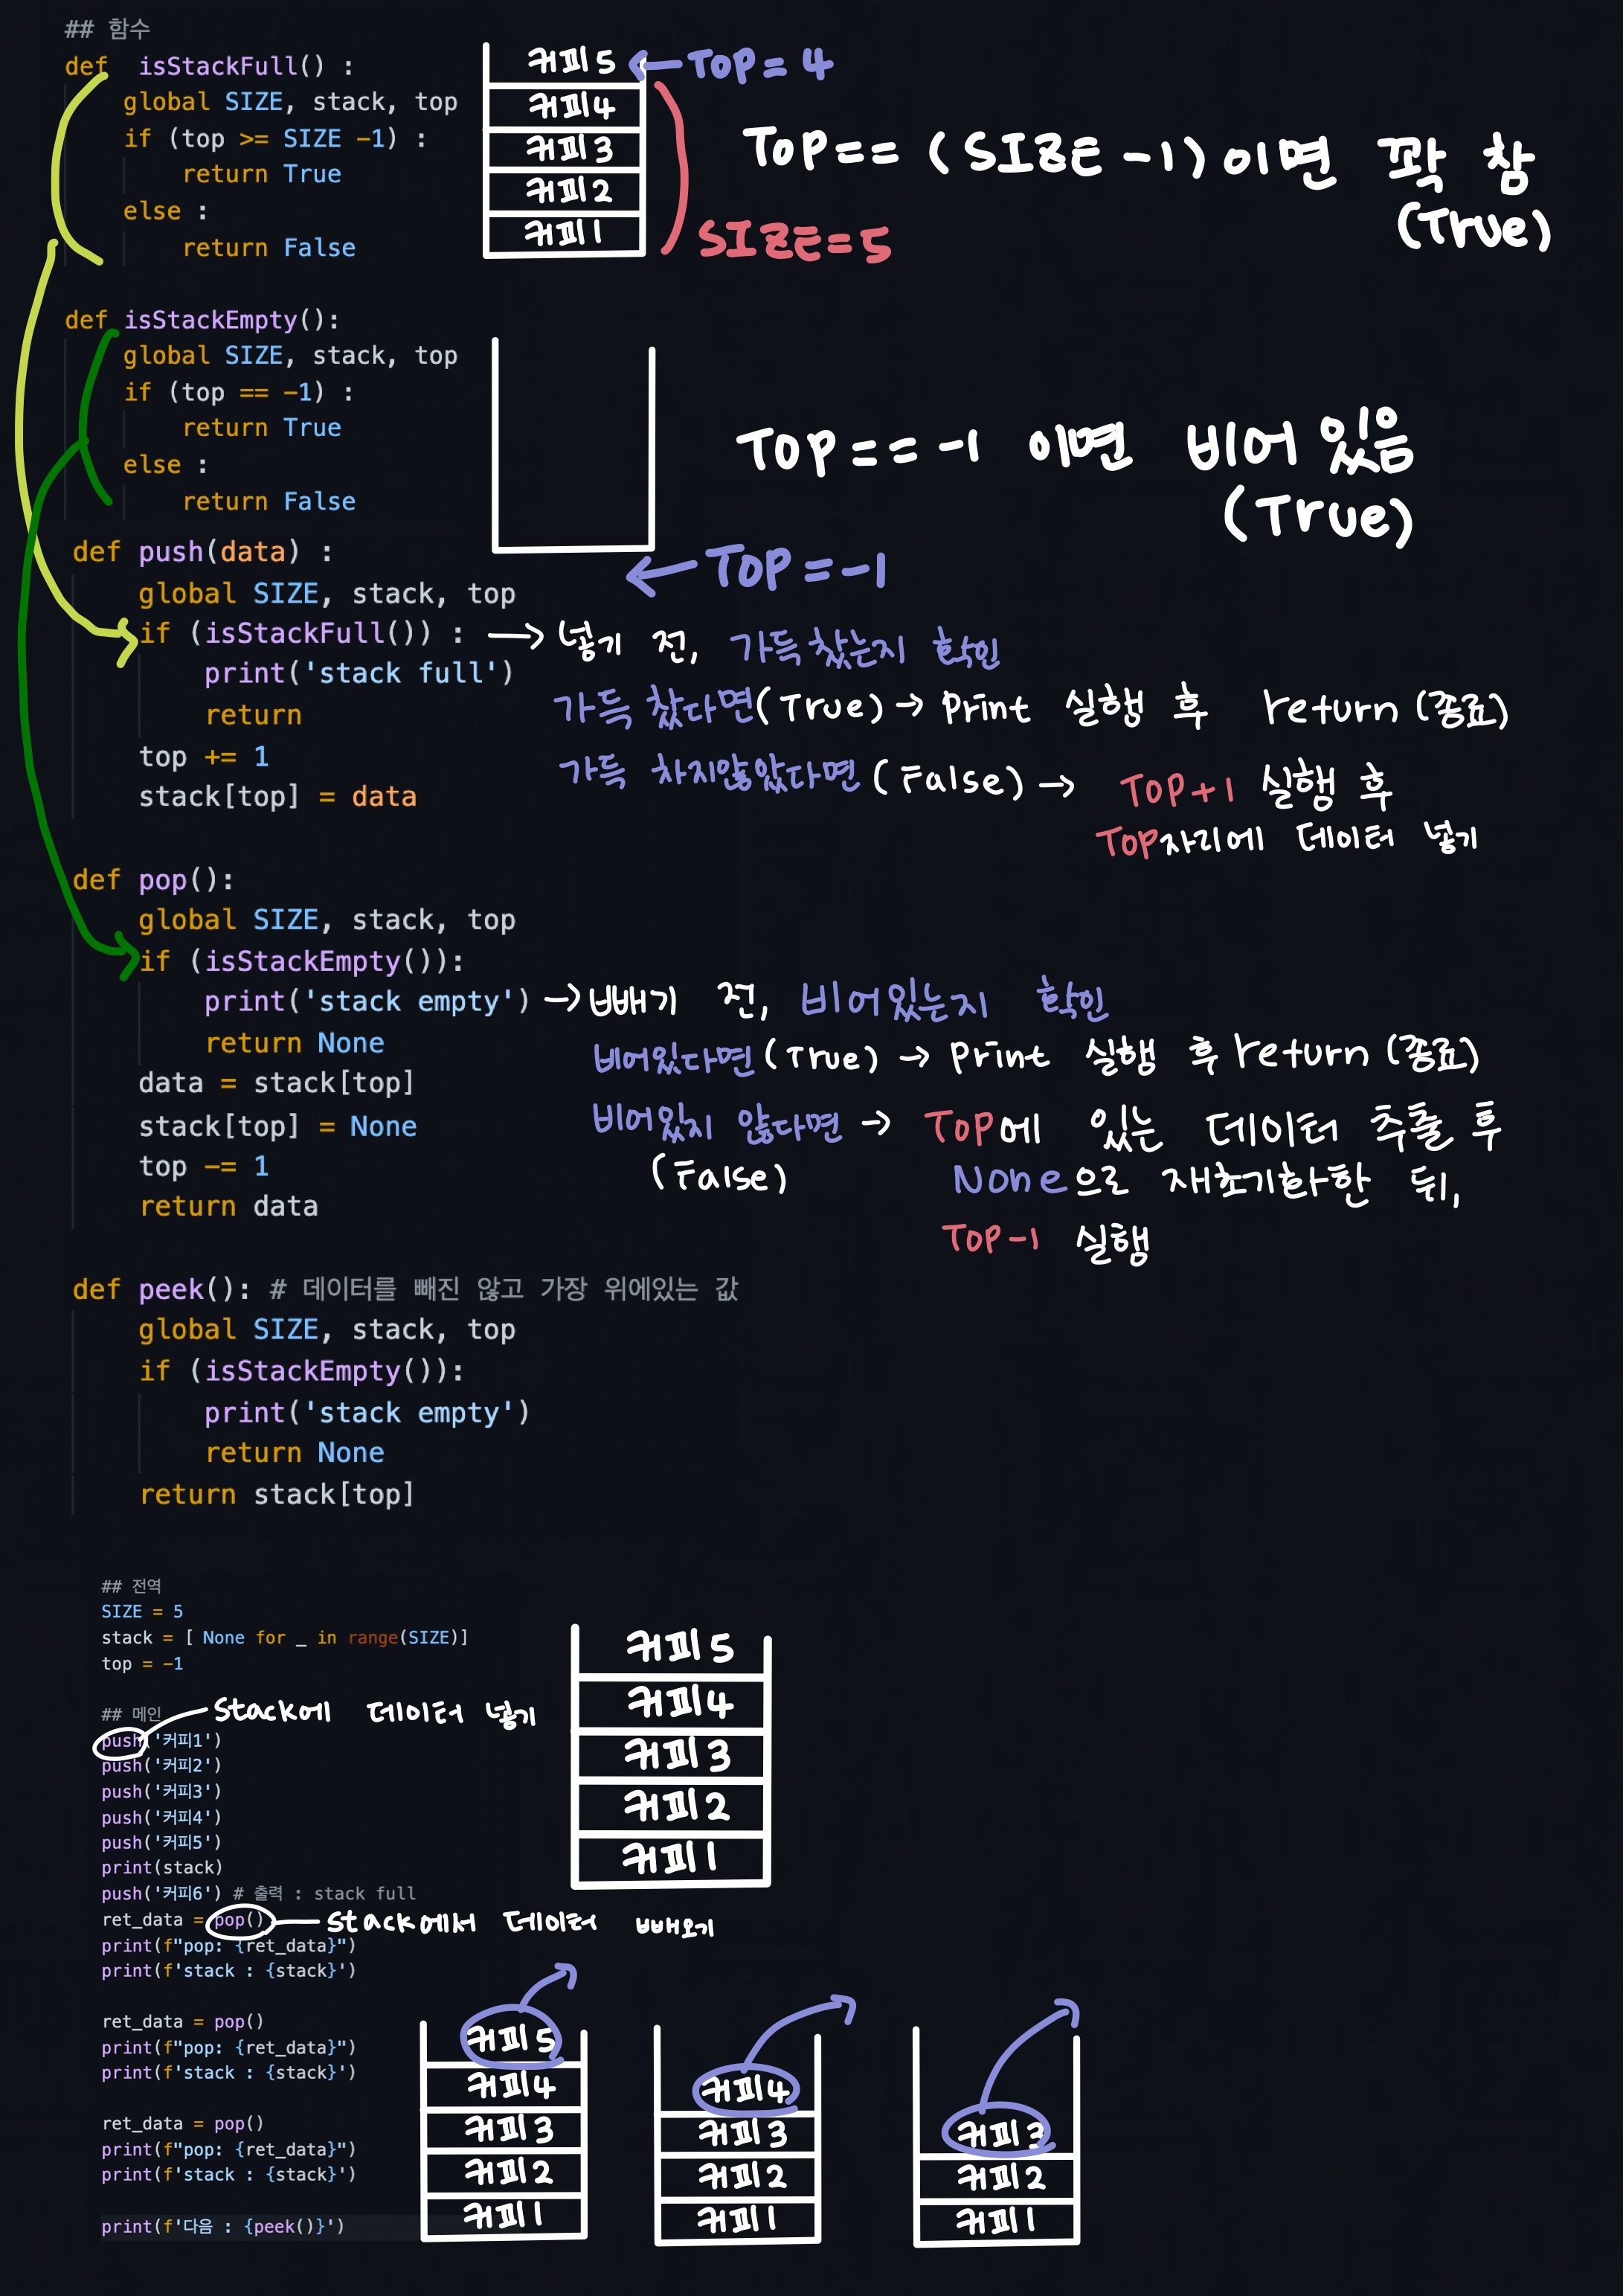 ## 함수
def isStackFull() :
global SIZE, stack, top
if (top >= SIZE -1) :
return True
else :
return False
커피5
커피4
커피3
커피2
커피1
← TOP = 4
SIZE=5
TOP== (SIZE -1)이면 꽉 참
(True)
def isStackEmpty():
global SIZE, stack, top
if (top == -1) :
return True
else :
return False
TOP == -1 이면 비어 있음
(True)
← TOP = -1
def push(data) :
global SIZE, stack, top
if (isStackFull()) : → 넣기 전, 가득찼는지 확인
print('stack full')
return
top += 1
stack[top] = data
가득 찼다면(True) → Print 실행 후 return (종료)
가득 차지않았다면 (False) → TOP+1 실행 후
TOP자리에 데이터 넣기
def pop():
global SIZE, stack, top
if (isStackEmpty()):
print('stack empty') → 빼기 전, 비어있는지 확인
return None
data = stack[top]
stack[top] = None
top -= 1
return data
비어있다면 (True) → Print 실행 후 return (종료)
비어있지 않다면 → TOP에 있는 데이터 추출 후
(False) None으로 재초기화한 뒤,
TOP-1 실행
def peek(): # 데이터를 빼진 않고 가장 위에있는 값
global SIZE, stack, top
if (isStackEmpty()):
print('stack empty')
return None
return stack[top]
## 전역
SIZE = 5
stack = [ None for _ in range(SIZE)]
top = -1
## 메인
Stack에 데이터 넣기
push('커피1')
push('커피2')
push('커피3')
push('커피4')
push('커피5')
print(stack)
push('커피6') # 출력 : stack full
커피5
커피4
커피3
커피2
커피1
ret_data = pop() Stack에서 데이터 빼오기
print(f"pop: {ret_data}")
print(f'stack : {stack}')
ret_data = pop()
print(f"pop: {ret_data}")
print(f'stack : {stack}')
ret_data = pop()
print(f"pop: {ret_data}")
print(f'stack : {stack}')
print(f'다음 : {peek()}')
커피5
커피4
커피3
커피2
커피1
커피4
커피3
커피2
커피1
커피3
커피2
커피1